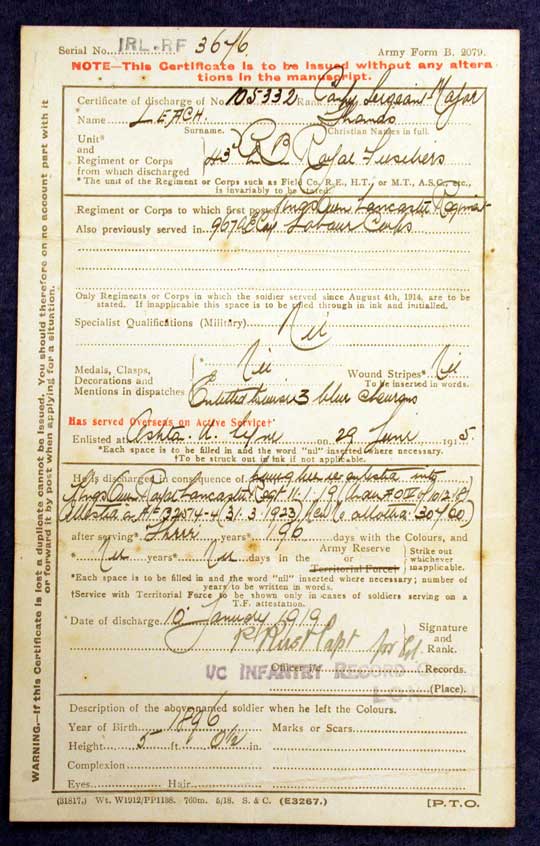 Serial No. IRL.RF 3676. Army Form B. 2079.
NOTE—This Certificate is to be issued without any altera
tions in the manuscript.
Certificate of discharge of No. 105332 Rank Major
Name LEACH.
Surname. Christian Names in full.
Unit*
and
Regiment or Corps
from which discharged
43 Royal Fusiliers
*The unit of the Regiment or Corps such as Field Co. R.E., H.T., or M.T., A.S.C., etc.,
is invariably to be stated.
Regiment or Corps to which first posted Kings Own Lancaster
Also previously served in Labour Corps
Only Regiments or Corps in which the soldier served since August 4th, 1914, are to be
stated. If inapplicable this space is to be ruled through in ink and initialled.
Specialist Qualifications (Military) Nil
Medals, Clasps,
Decorations and
Mentions in dispatches
* Nil
Wound Stripes* Nil
To be inserted in words.
Entitled to wear 3 blue chevrons
Has served Overseas on Active Service†
Enlisted at Ashton. U. Lyne on 29 June 1915
*Each space is to be filled in and the word "nil" inserted where necessary.
†To be struck out in ink if not applicable.
He is discharged in consequence of having been re-enlisted into
Kings Own Royal Lancaster 11.1.19
(31.3.1923)
after serving* Three years* 196 days with the Colours, and
* Nil years* Nil days in the Army Reserve
or
Territorial Force†
Strike out
whichever
inapplicable.
*Each space is to be filled in and the word "nil" inserted where necessary; number of
years to be written in words.
†Service with Territorial Force to be shown only in cases of soldiers serving on a
T.F. attestation.
*Date of discharge 10 January 1919
Capt for Col.
Signature
and
Rank.
Officer i/c Records.
INFANTRY RECORD
(Place).
Description of the above-named soldier when he left the Colours.
Year of Birth 1896 Marks or Scars
Height 5 ft. 0½ in.
Complexion
Eyes Hair
(31817.) Wt. W1912/PP1138. 760m. 5/18. S. & C. (E3267.) [P.T.O.
WARNING.—If this Certificate is lost a duplicate cannot be issued. You should therefore on no account part with it
or forward it by post when applying for a situation.